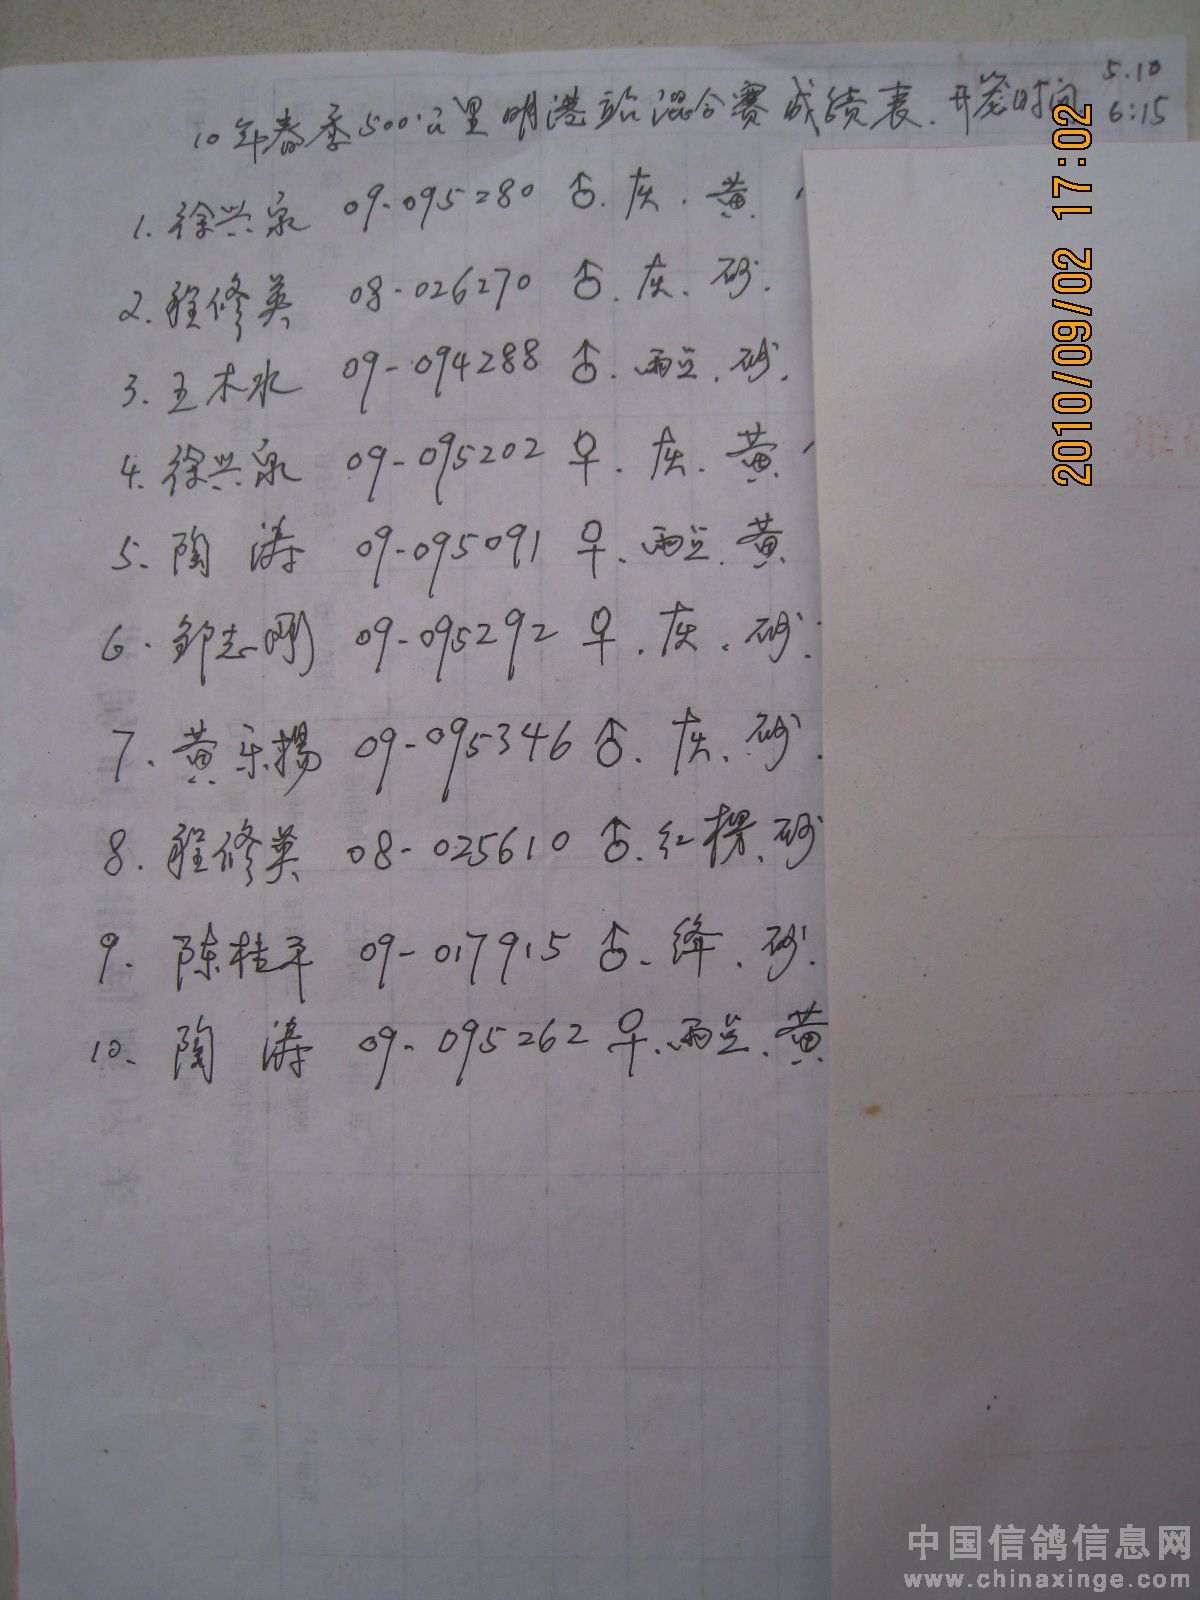 10年春季500公里明港站混合赛成绩表.开笼时间 5.10 6:15
1.徐兴泉 09-095280 ♂.灰.黄
2.程修英 08-026270 ♂.灰.砂.
3.王木水 09-094288 ♂.雨点.砂.
4.徐兴泉 09-095202 ♀.灰.黄
5.陶涛 09-095091 ♀.雨点.黄
6.邹志刚 09-095292 ♀.灰.砂.
7.黄乐扬 09-095346 ♂.灰.砂.
8.程修英 08-025610 ♂.红楞.砂
9.陈桂平 09-017915 ♂.绛.砂.
10.陶涛 09-095262 ♀.雨点.黄
2010/09/02 17:02
中国信鸽信息网
www.chinaxinge.com